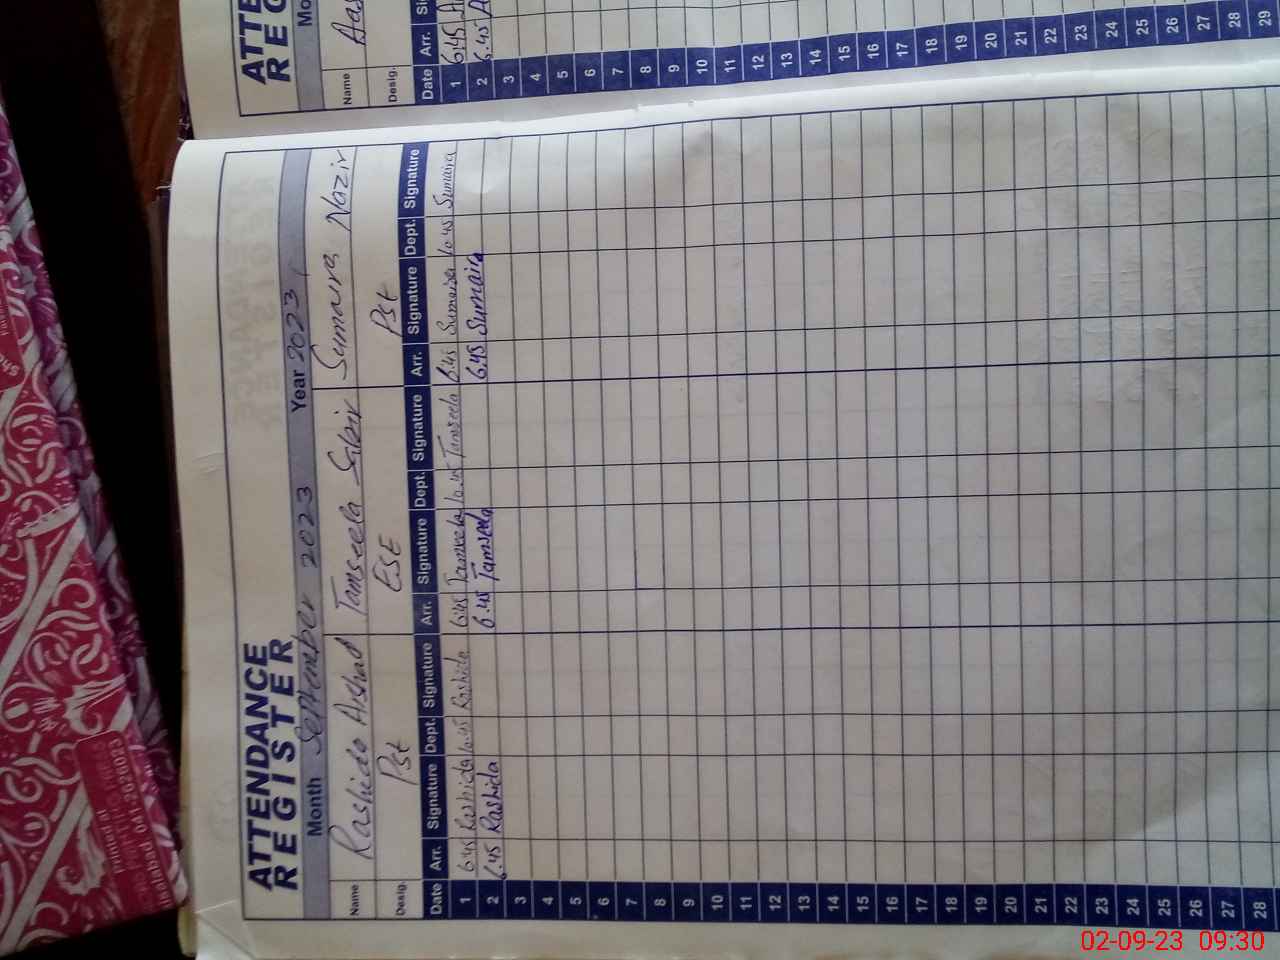 ATTENDANCE
REGISTER
Month September 2023 Year 2023
Name Rashida Arshad Tamseela Sabir Sumaira Nazir
Desig. Pst ESE Pst
Date Arr. Signature Dept. Signature Arr. Signature Dept. Signature Arr. Signature Dept. Signature
1 6:45 Rashida 10.45 Rashida 6:45 Tamseela 10.45 Tamseela 6.45 Sumaira 10.45 Sumaira
2 6.45 Rashida 6.45 Tamseela 6.45 Sumaira
3
4
5
6
7
8
9
10
11
12
13
14
15
16
17
18
19
20
21
22
23
24
25
26
27
28
ATTE
REG
Mo
Name
Desig.
Date Arr.
1 6:45
2 6.45
3
4
5
6
7
8
9
10
11
12
13
14
15
16
17
18
19
20
21
22
23
24
25
26
27
28
29
Printed at
02-09-23 09:30